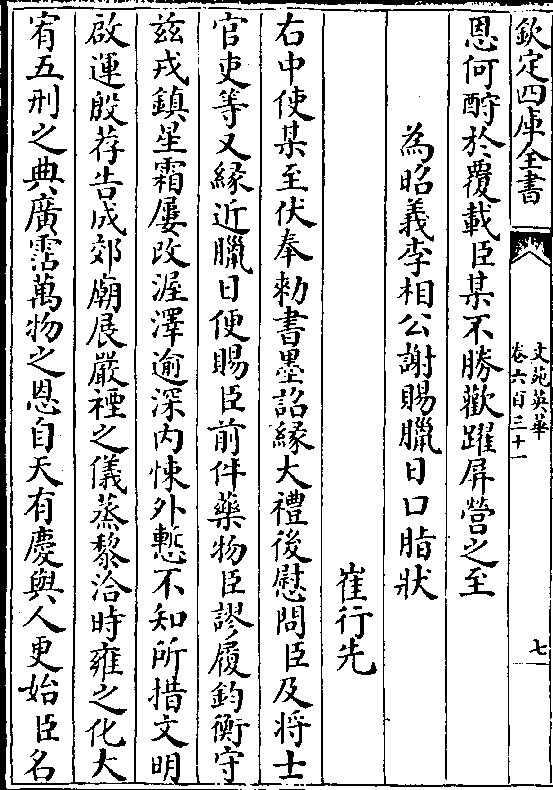 欽定四庫全書
文苑英華
卷六百三十一
七
恩何酧於覆載臣某不勝歡躍屏營之至
為昭義李相公謝賜臘日口脂狀
崔行先
右中使某至伏奉勅書墨詔縁大禮後慰問臣及将士
官吏等又緣近臘日便賜臣前件藥物臣謬履鈞衡守
兹戎鎮星霜屢改渥澤逾深内悚外慙不知所措文明
啟運殷荐告成郊廟展嚴禋之儀蒸黎洽時雍之化大
宥五刑之典廣霑萬物之恩自天有慶與人更始臣名